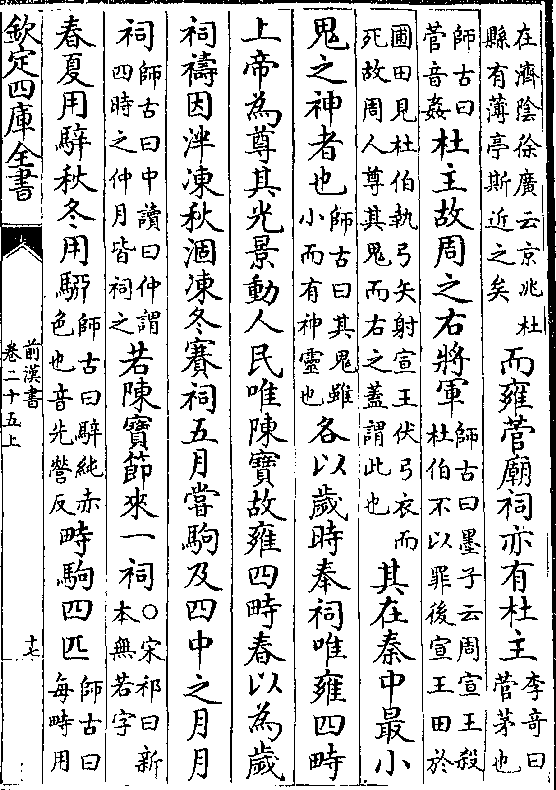 在濟陰徐廣云京兆杜縣有薄亭斯近之矣而雍菅廟祠亦有杜主李奇曰菅茅也
師古曰菅音姦杜主故周之右將軍師古曰墨子云周宣王殺杜伯不以罪後宣王田於
圃田見杜伯執弓矢射宣王伏弓衣而死故周人尊其鬼而右之蓋謂此也其在秦中最小
鬼之神者也師古曰其鬼雖小而有神靈也各以歲時奉祠唯雍四畤
上帝為尊其光景動人民唯陳寶故雍四畤春以為歲
祠禱因泮凍秋涸凍冬賽祠五月嘗駒及四中之月月
祠師古曰中讀曰仲謂四時之仲月皆祠之若陳寶節來一祠○宋祁曰新本無若字
春夏用騂秋冬用駵師古曰騂純赤色也音先營反畤駒四匹師古曰每畤用
欽定四庫全書
前漢書
卷二十五上
十七